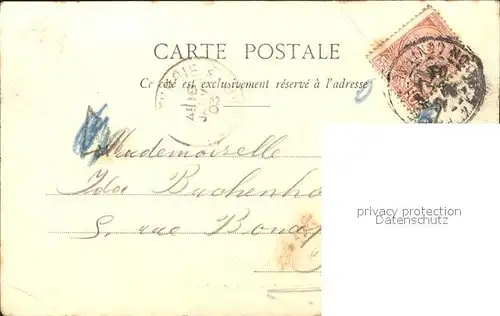 CARTE POSTALE
Ce côté est exclusivement réservé à l'adresse
Mademoiselle
Ida Buchenho
5, rue Bona
privacy protection
Datenschutz